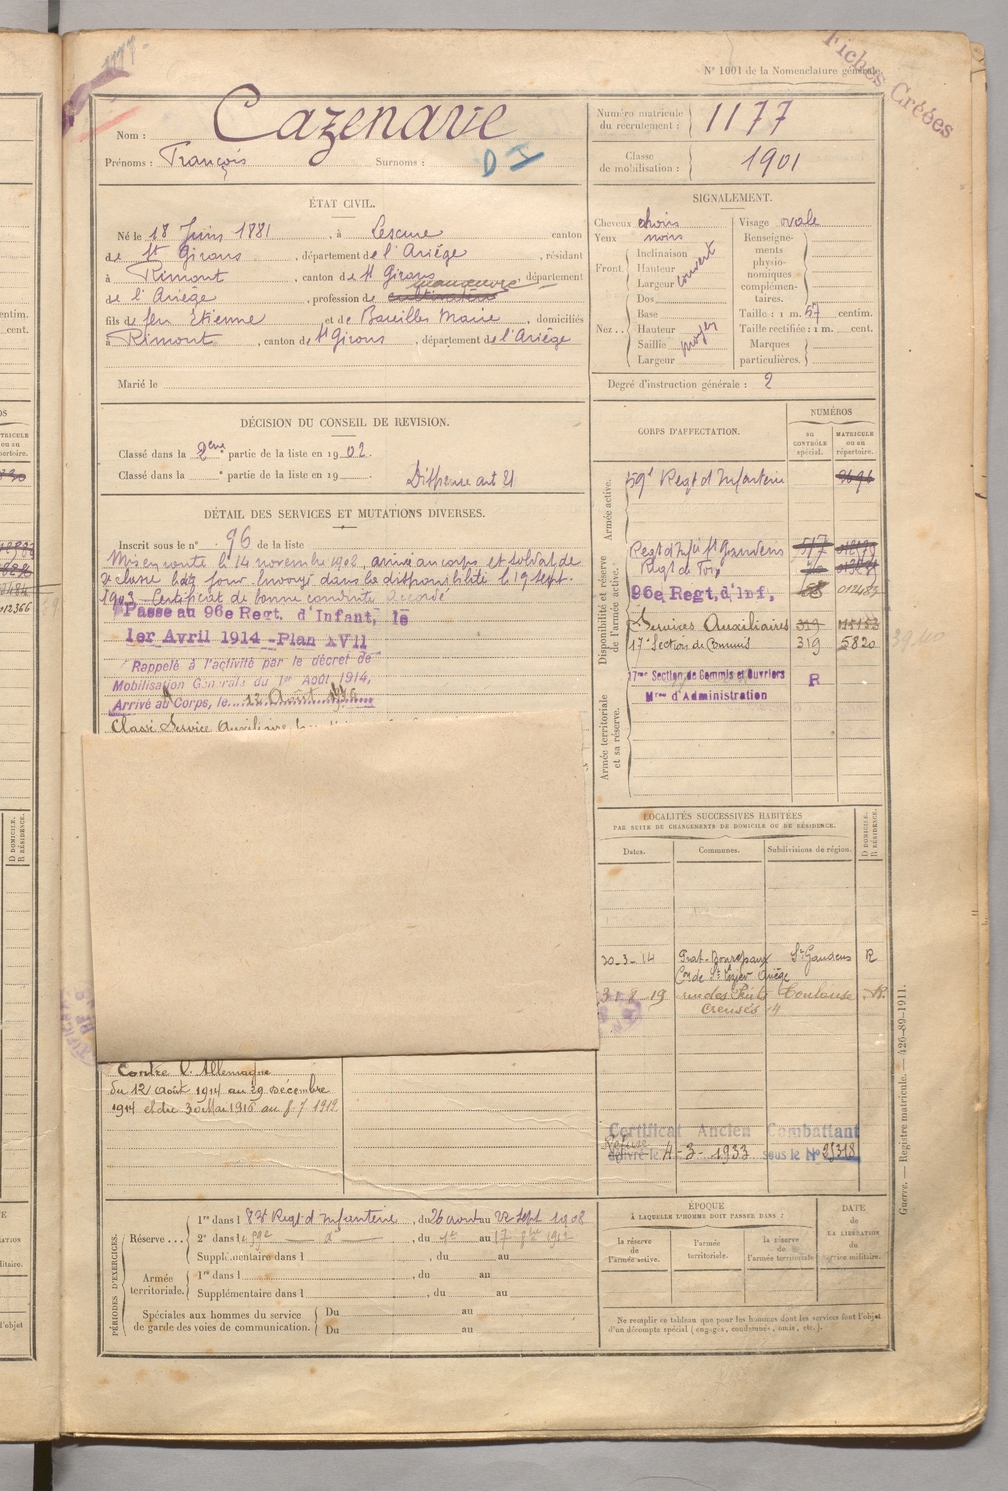 1177
N° 1001 de la Nomenclature générale
Fiches Créées
Nom : Cazenave
Prénoms : François Surnoms :
D I
Numéro matricule du recrutement : 1177
Classe de mobilisation : 1901
ÉTAT CIVIL.
Né le 18 Juin 1881, à Lescure canton
de St Girons, département de l'Ariége, résidant
à Rimont, canton de St Girons, département
manœuvre
de l'Ariége, profession de cultivateur
fils de feu Etienne et de Bareilles Marie, domiciliés
à Rimont, canton de St Girons, département de l'Ariége
Marié le
SIGNALEMENT.
Cheveux noirs
Yeux noirs
Front Inclinaison
Hauteur
Largeur
couvert
Nez Dos
Base
Hauteur
Saillie
Largeur
moyen
Visage ovale
Renseignements physionomiques complémentaires.
Taille : 1 m. 57 centim.
Taille rectifiée : 1 m. cent.
Marques particulières.
Degré d'instruction générale : 2
DÉCISION DU CONSEIL DE REVISION.
Classé dans la 2ème partie de la liste en 1902.
Classé dans la ° partie de la liste en 19
Dispense art 21
DÉTAIL DES SERVICES ET MUTATIONS DIVERSES.
Inscrit sous le n° 96 de la liste
Mis en route le 14 novembre 1902, arrivé au corps et soldat de
2e classe le dit jour. Envoyé dans la disponibilité le 19 Sept.
1903. Certificat de bonne conduite accordé
Passe au 96e Regt. d'Infant, le
1er Avril 1914 - Plan XVII
Rappelé à l'activité par le décret de
Mobilisation Générale du 1er Août 1914,
Arrivé au Corps, le 12 Août 1914
Classé Service Auxiliaire
CORPS D'AFFECTATION.
NUMÉROS
au contrôle spécial.
matricule ou au répertoire.
Armée active.
59e Regt d'Infanterie
Disponibilité et réserve de l'armée active.
Regt d'Infie St Gaudens 517
Regt de Foix
96e Regt, d'Inf, 012489
Services Auxiliaires 319
17e Section de Commis 319 5820
Armée territoriale et sa réserve.
17me Section de Commis et Ouvriers
Mres d'Administration
R
LOCALITÉS SUCCESSIVES HABITÉES
PAR SUITE DE CHANGEMENTS DE DOMICILE OU DE RÉSIDENCE.
Dates. Communes. Subdivisions de région. D DOMICILE. R RÉSIDENCE.
30-3-14 Prat-Bonrepaux St Gaudens R
Con de St Lizier Ariége
31-8-19 rue des Puits Toulouse R.
Creusés 4
Contre l'Allemagne
du 12 Août 1914 au 29 Décembre
1914 et du 30 Mai 1915 au
Certificat Ancien Combattant
Refusé
délivré le 4-3-1933 sous le N° 25318
PÉRIODES D'EXERCICES.
Réserve... 1re dans l 83e Regt d'Infanterie, du 26 août au 22 Sept 1908
2e dans le 59e do, du 1er au 17 1912
Supplémentaire dans l, du au
Armée territoriale. 1re dans l, du au
Supplémentaire dans l, du au
Spéciales aux hommes du service de garde des voies de communication. Du au
Du au
ÉPOQUE
À LAQUELLE L'HOMME DOIT PASSER DANS :
la réserve de l'armée active. l'armée territoriale. la réserve de l'armée territoriale
DATE de LA LIBÉRATION du service militaire.
Ne remplir ce tableau que pour les hommes dont les services font l'objet
d'un décompte spécial (engagés, condamnés, omis, etc.).
Guerre. — Registre matricule. — 426-89-1911.